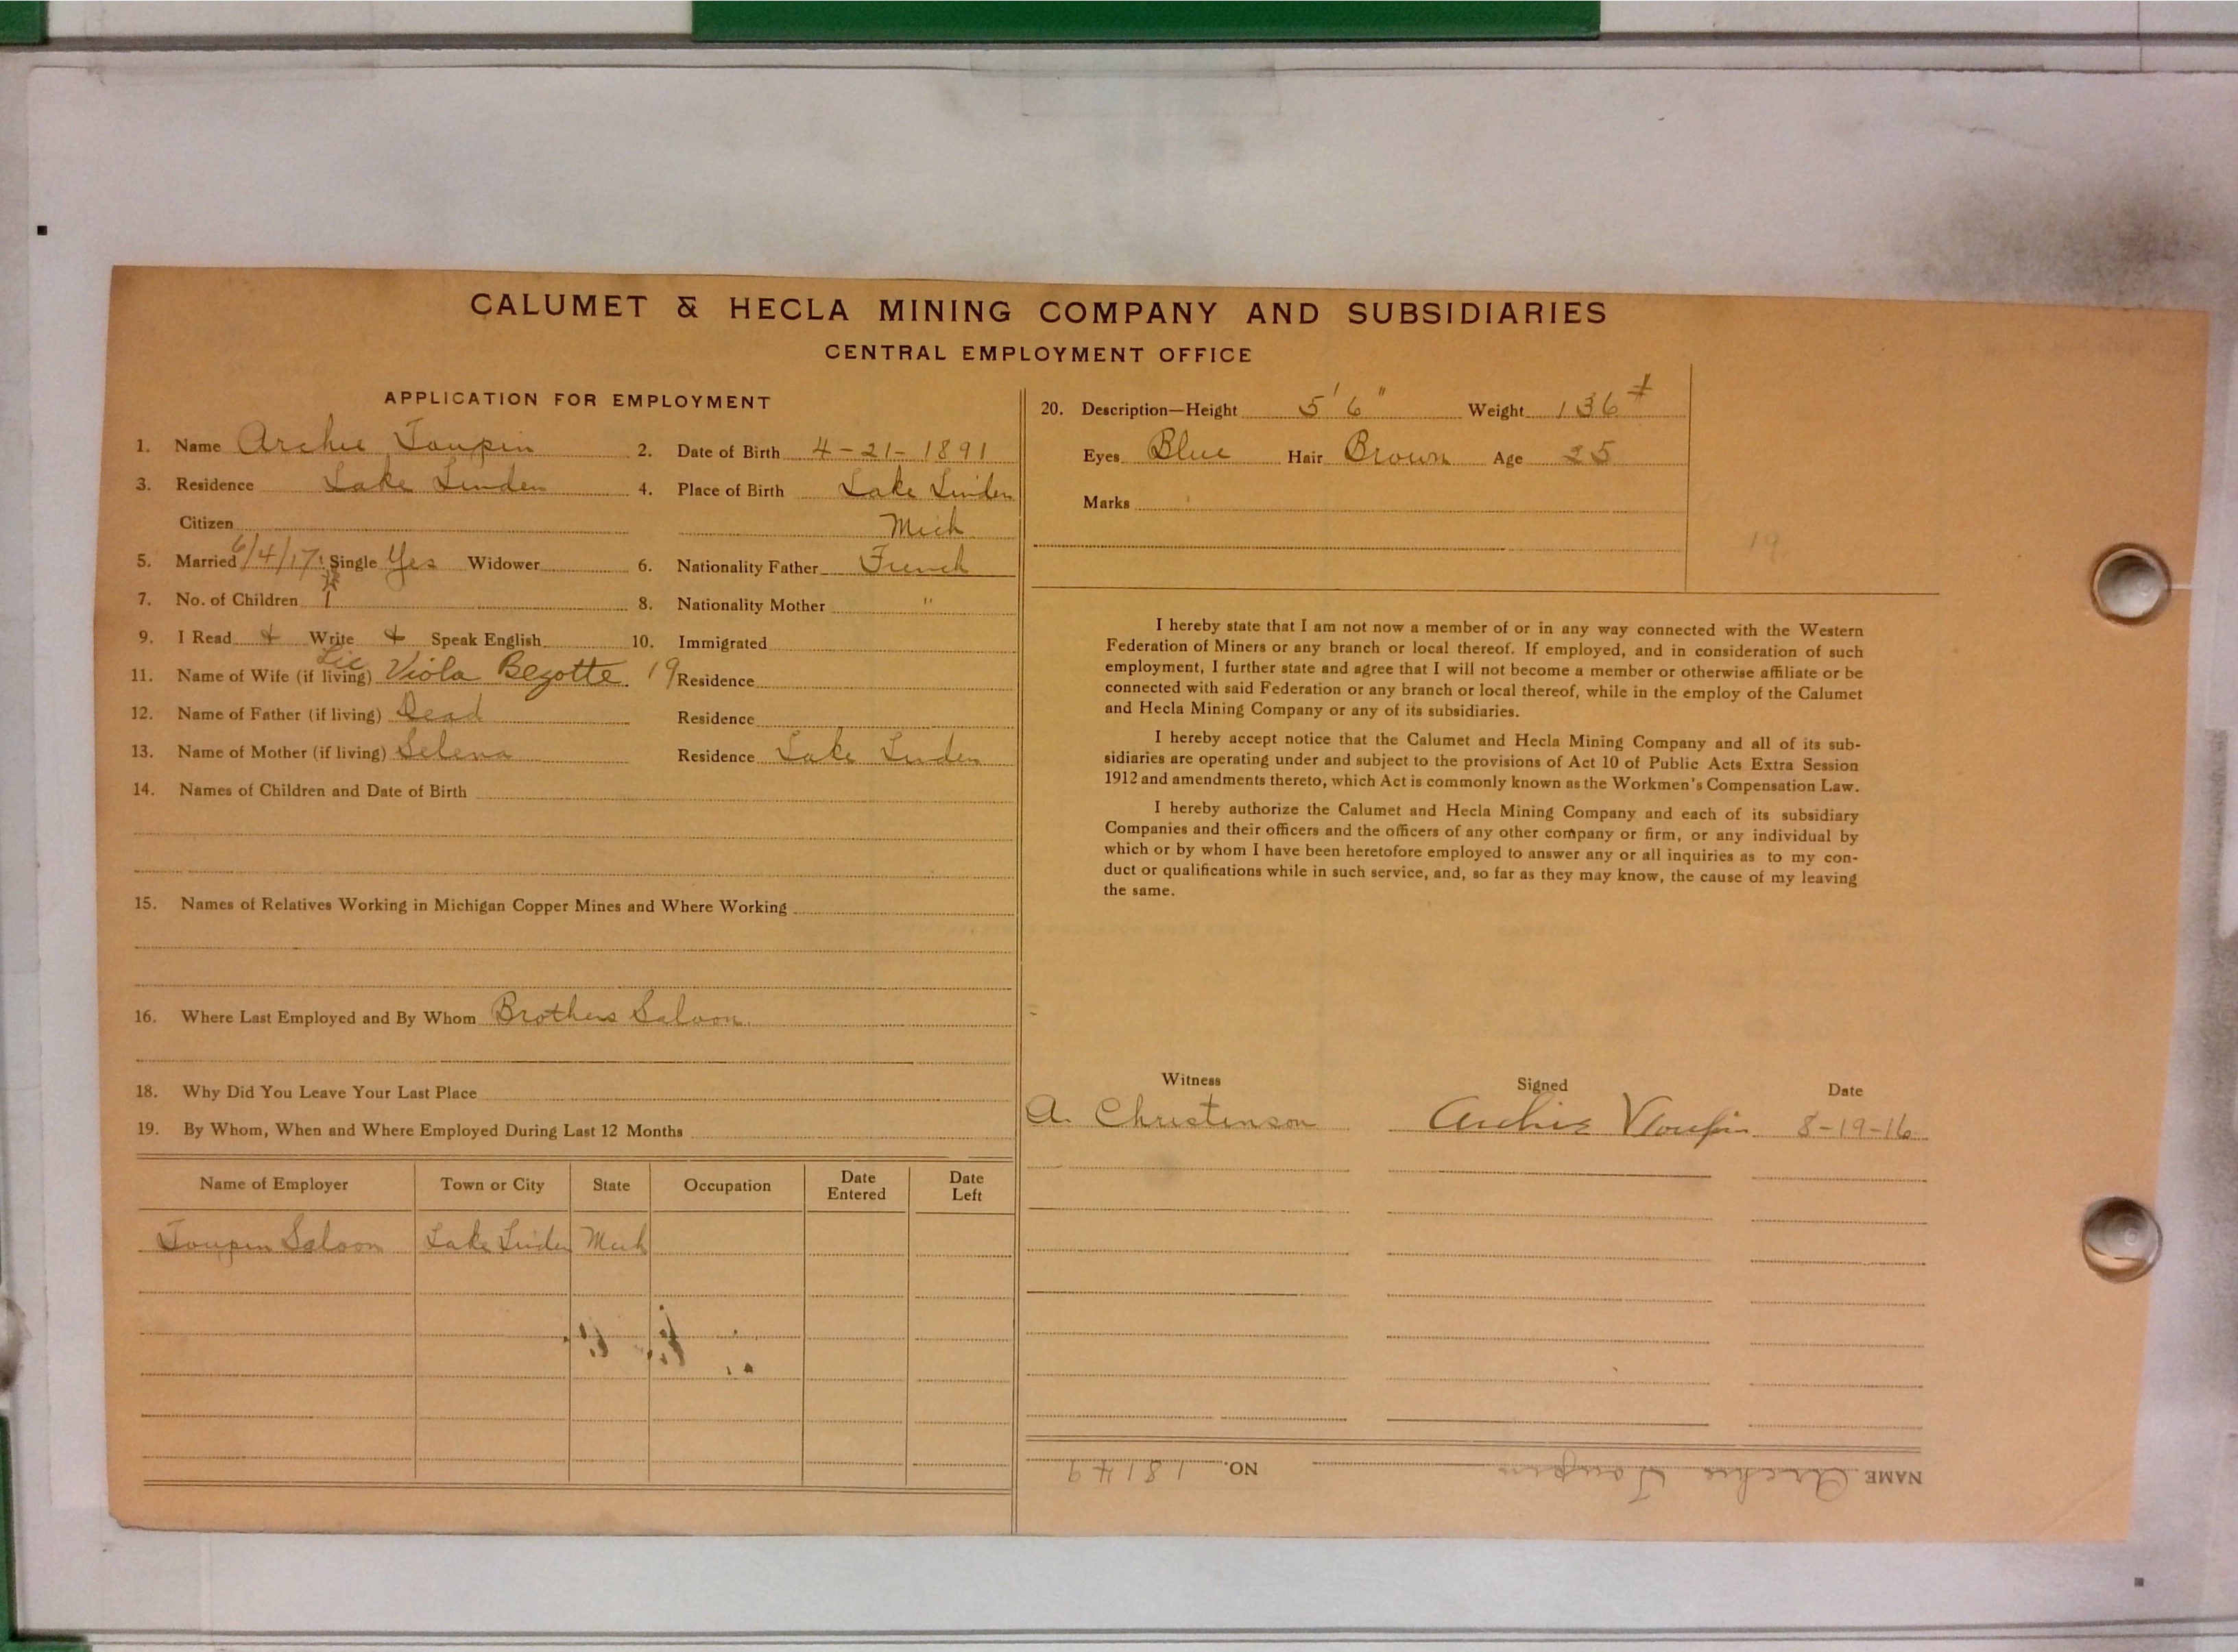 CALUMET & HECLA MINING COMPANY AND SUBSIDIARIES
CENTRAL EMPLOYMENT OFFICE
APPLICATION FOR EMPLOYMENT
1. Name Archie Toupin 2. Date of Birth 4-21-1891
3. Residence Lake Linden 4. Place of Birth Lake Linden
Citizen Mich
5. Married 6/4/17 Single Yes Widower 6. Nationality Father French
7. No. of Children 1 8. Nationality Mother "
9. I Read + Write + Speak English 10. Immigrated
Lic
11. Name of Wife (if living) Viola Bezotte. 19 Residence
12. Name of Father (if living) Dead Residence
13. Name of Mother (if living) Selena Residence Lake Linden
14. Names of Children and Date of Birth
15. Names of Relatives Working in Michigan Copper Mines and Where Working
16. Where Last Employed and By Whom Brothers Saloon.
18. Why Did You Leave Your Last Place
19. By Whom, When and Where Employed During Last 12 Months
Name of Employer Town or City State Occupation Date Entered Date Left
Toupin Saloon Lake Linden Mich
20. Description—Height 5' 6" Weight 136 #
Eyes Blue Hair Brown Age 25
Marks
19
I hereby state that I am not now a member of or in any way connected with the Western
Federation of Miners or any branch or local thereof. If employed, and in consideration of such
employment, I further state and agree that I will not become a member or otherwise affiliate or be
connected with said Federation or any branch or local thereof, while in the employ of the Calumet
and Hecla Mining Company or any of its subsidiaries.
I hereby accept notice that the Calumet and Hecla Mining Company and all of its sub-
sidiaries are operating under and subject to the provisions of Act 10 of Public Acts Extra Session
1912 and amendments thereto, which Act is commonly known as the Workmen's Compensation Law.
I hereby authorize the Calumet and Hecla Mining Company and each of its subsidiary
Companies and their officers and the officers of any other company or firm, or any individual by
which or by whom I have been heretofore employed to answer any or all inquiries as to my con-
duct or qualifications while in such service, and, so far as they may know, the cause of my leaving
the same.
Witness Signed Date
A. Christenson Archie Toupin 8-19-16
NAME Archie Toupin NO. 18149